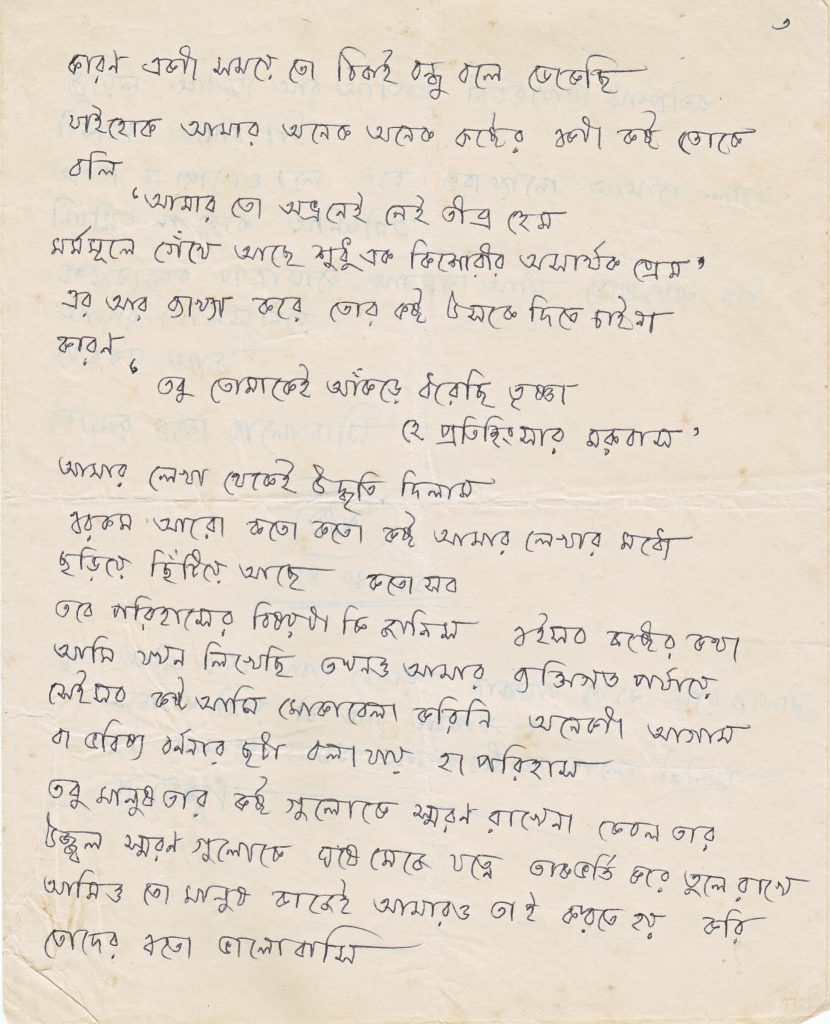 ৩
কারণ একটা সময়ে তো ঠিকই বন্ধু বলে ভেবেছি
যাইহোক আমার অনেক অনেক কষ্টের একটা কষ্ট তোকে
বলি
‘আমার তো অভ্রনেই নেই তীব্র হেম
মর্মমূলে গেঁথে আছে শুধু এক কিশোরীর অসার্থক প্রেম’
এর আর ব্যাখ্যা করে তোর কষ্ট উসকে দিতে চাইনা
কারণ
‘তবু তোমাকেই আঁকড়ে ধরেছি তৃষ্ণা
হে প্রতিহিংসার মরুবাস’
আমার লেখা থেকেই উদ্ধৃতি দিলাম
এরকম আরো কতো কতো কষ্ট আমার লেখার মধ্যে
ছড়িয়ে ছিটিয়ে আছে কতো সব
তবে পরিহাসের বিষয়টা কি জানিস এইসব কষ্টের কথা
আমি যখন লিখেছি তখনও আমার ব্যক্তিগত পর্যায়ে
সেইসব কষ্ট আমি মোকাবেলা করিনি অনেকটা আগাম
বা ভবিষ্য বর্ননার ছটা বলা যায় হা পরিহাস
তবু মানুষ তার কষ্ট গুলোকে স্মরণ রাখেনা কেবল তার
উজ্জ্বল স্মরণ গুলোকে ঘষে মেজে যত্নে তাকভর্তি করে তুলে রাখে
আমিও তো মানুষ কাজেই আমারও তাই করতে হয় করি
তোদের এতো ভালোবাসি